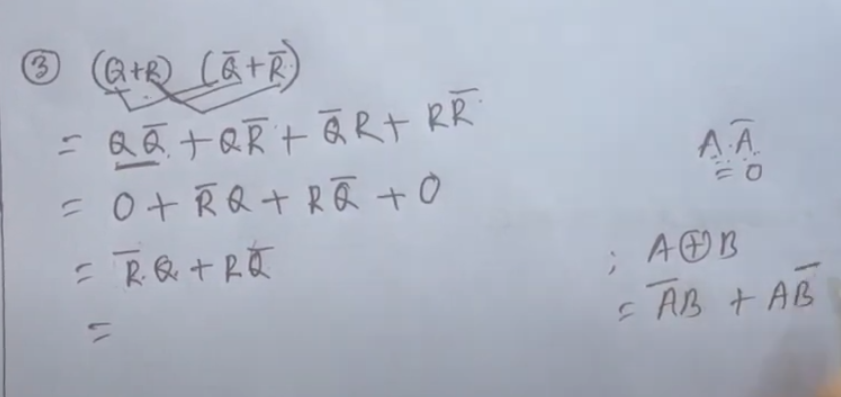 ③ (Q+R) (Q̅+R̅)
= QQ̅ + QR̅ + Q̅R + RR̅
= 0 + R̅Q + RQ̅ + 0
= R̅.Q + RQ̅
=
A.A̅
= 0
; A⊕B
= A̅B + AB̅